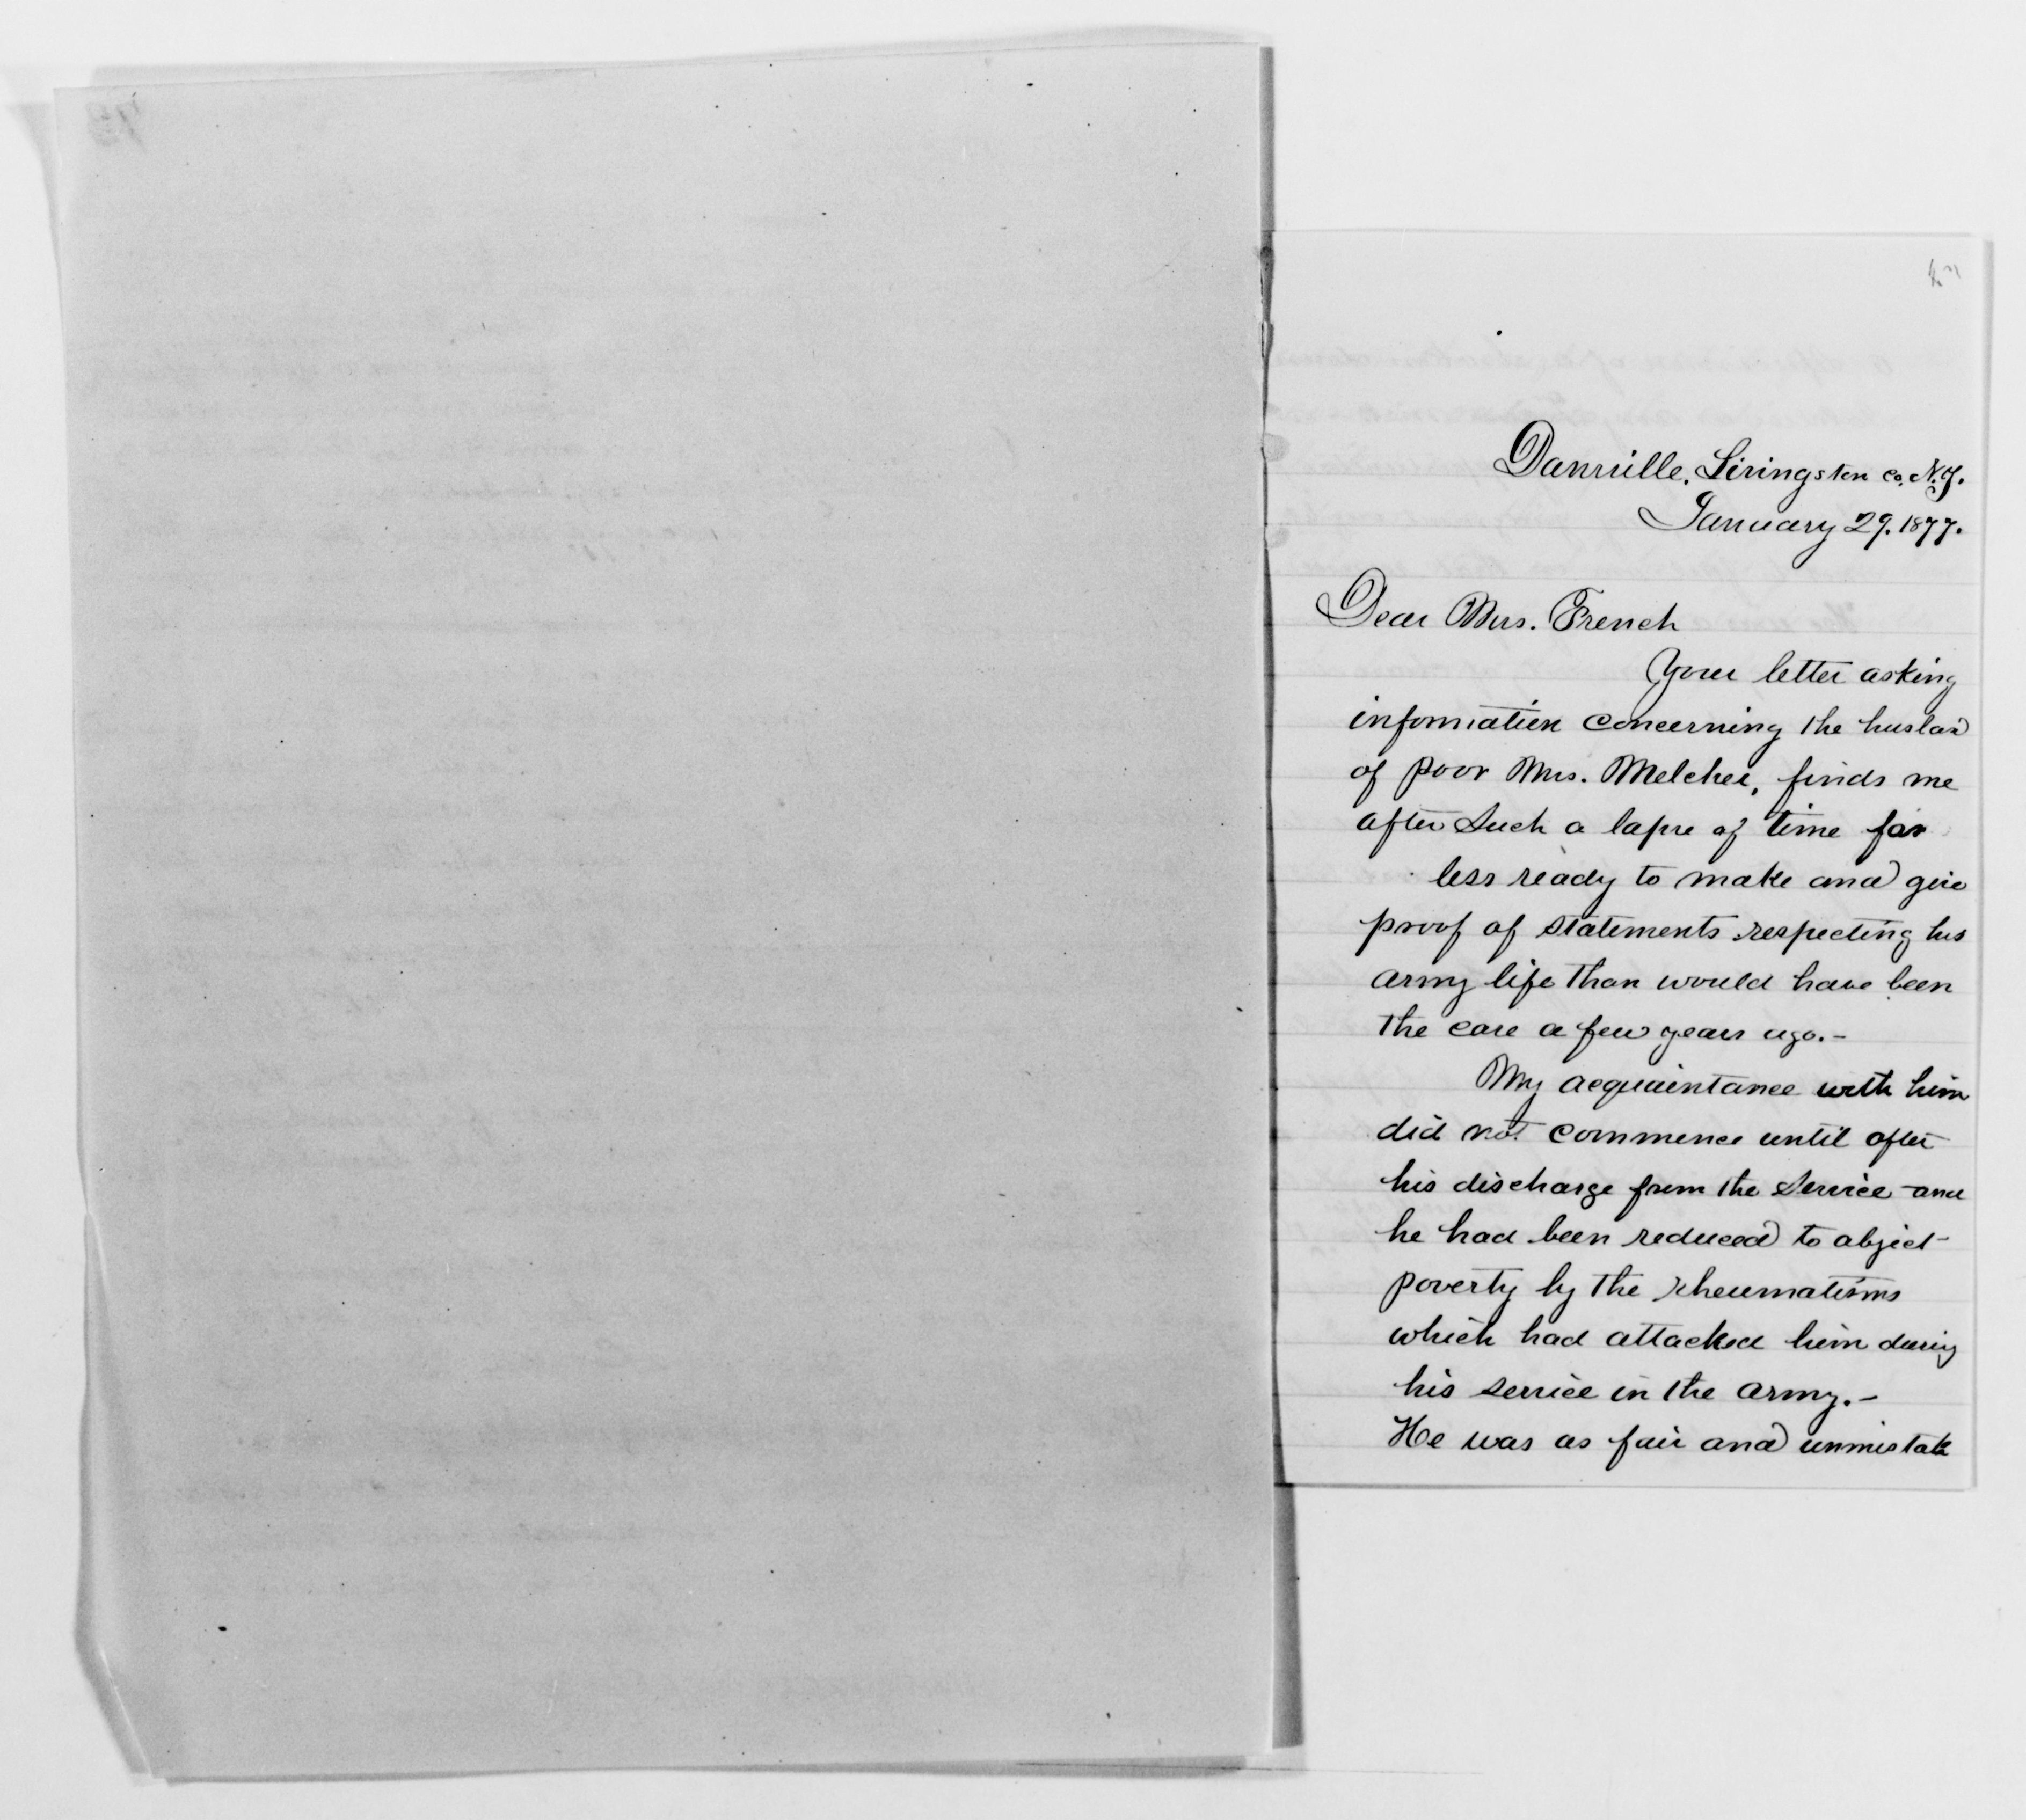 Dansville, Livingston Co. N.Y.
January 29. 1877.
Dear Mrs. French
Your letter asking
information concerning the husband
of poor Mrs. Melcher, finds me
after such a lapse of time far
less ready to make and give
proof of statements respecting his
army life than would have been
the case a few years ago.-
My acquaintance with him
did not commence until after
his discharge from the service and
he had been reduced to abject
poverty by the rheumatisms
which had attacked him during
his service in the army.-
He was as fair and unmistak